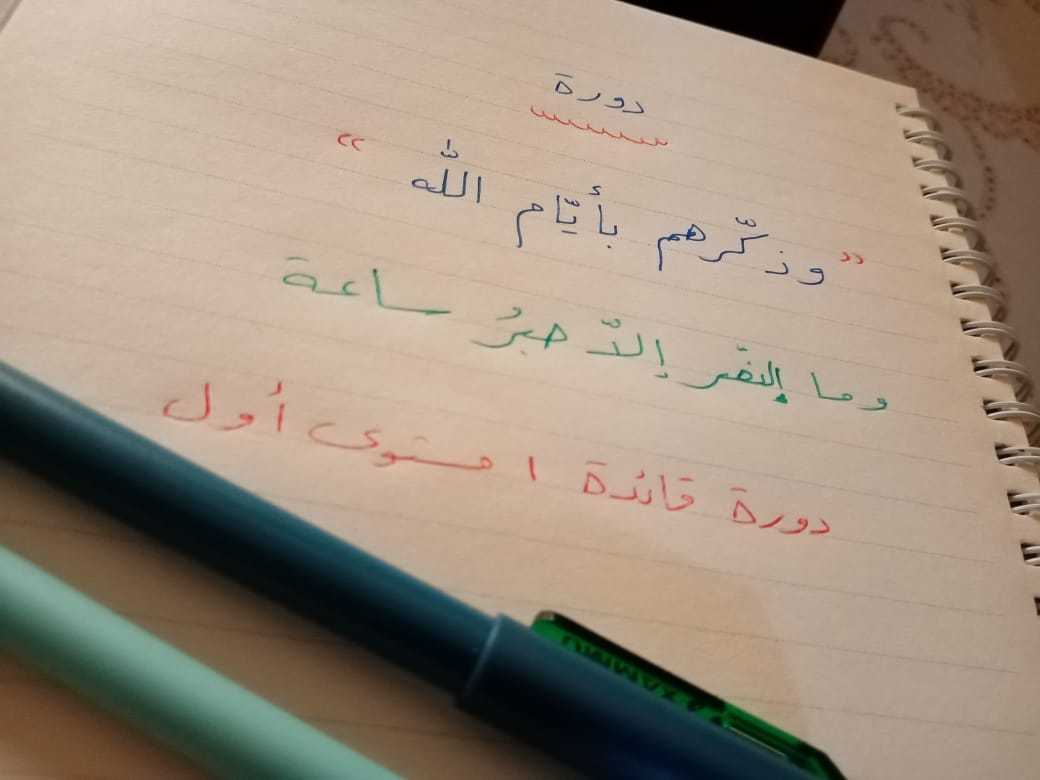 دورة
"وذكّرهم بأيّام اللّه"
وما النصر إلاّ صبرُ ساعة
دورة قائدة ١ مستوى أول